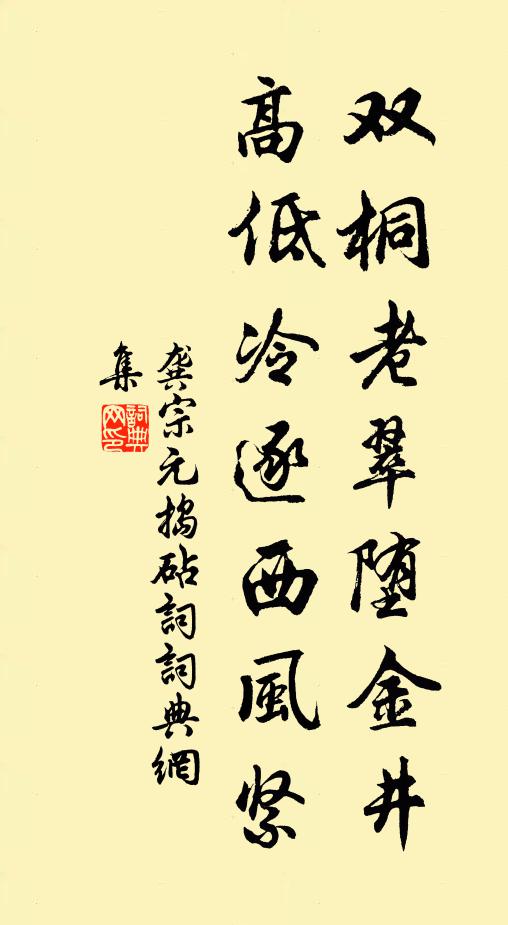 双桐老翠堕金井
高低冷逐西風紧
龚宗元捣砧詞詞典網
集
詞典网印